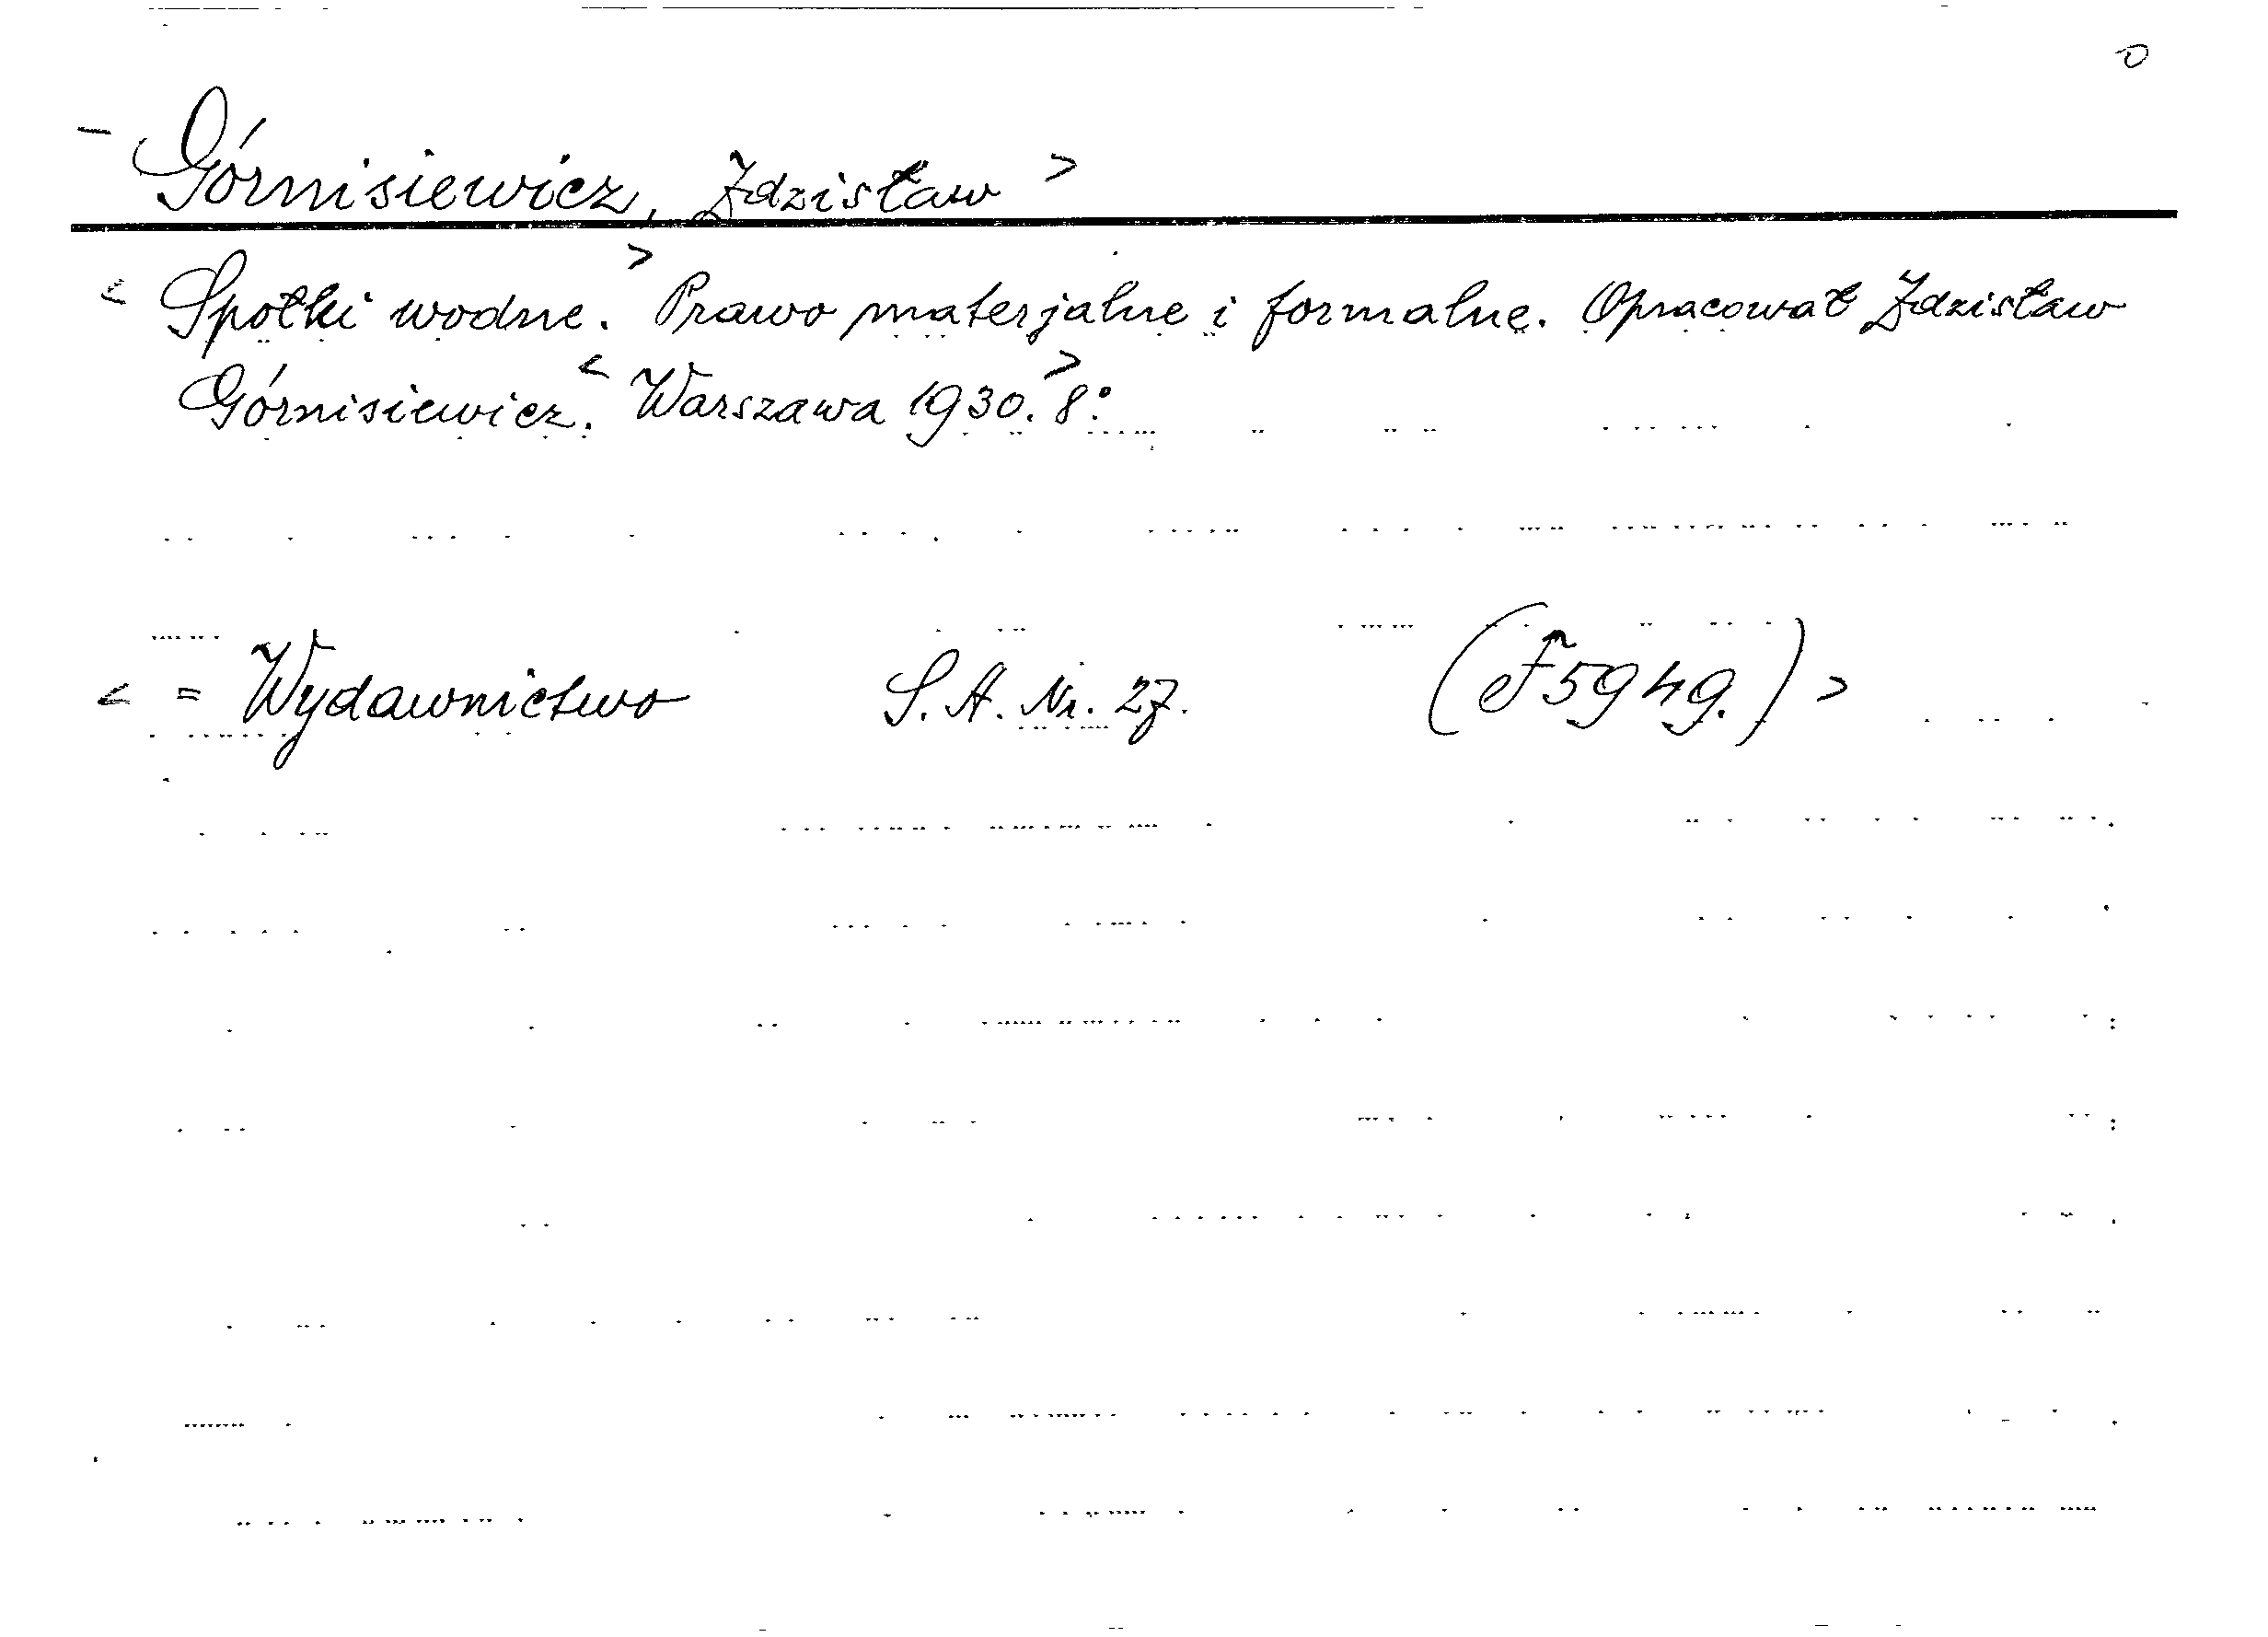 0
- Górnisiewicz, Zdzisław >
< Spółki wodne. > Prawo materjalne i formalne. Opracował Zdzisław
Górnisiewicz. < Warszawa 1930. > 8º.
< = Wydawnictwo S. A. Nr. 27. (F 5949.) >